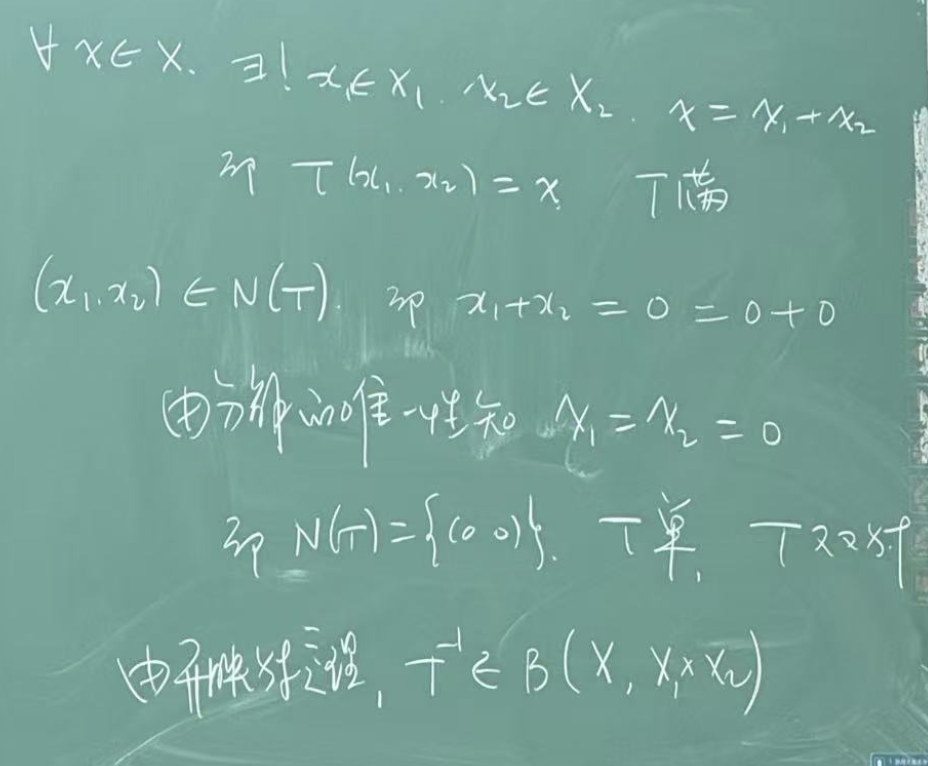 ∀ x∈X. ∃! x₁∈X₁. x₂∈X₂. x=x₁+x₂
即 T(x₁,x₂)=x. T满
(x₁,x₂)∈N(T). 即 x₁+x₂=0=0+0
由分解的唯一性知 x₁=x₂=0
即 N(T)={(0 0)}. T单, T双射
由开映射定理, T⁻¹∈B(X, X₁×X₂)